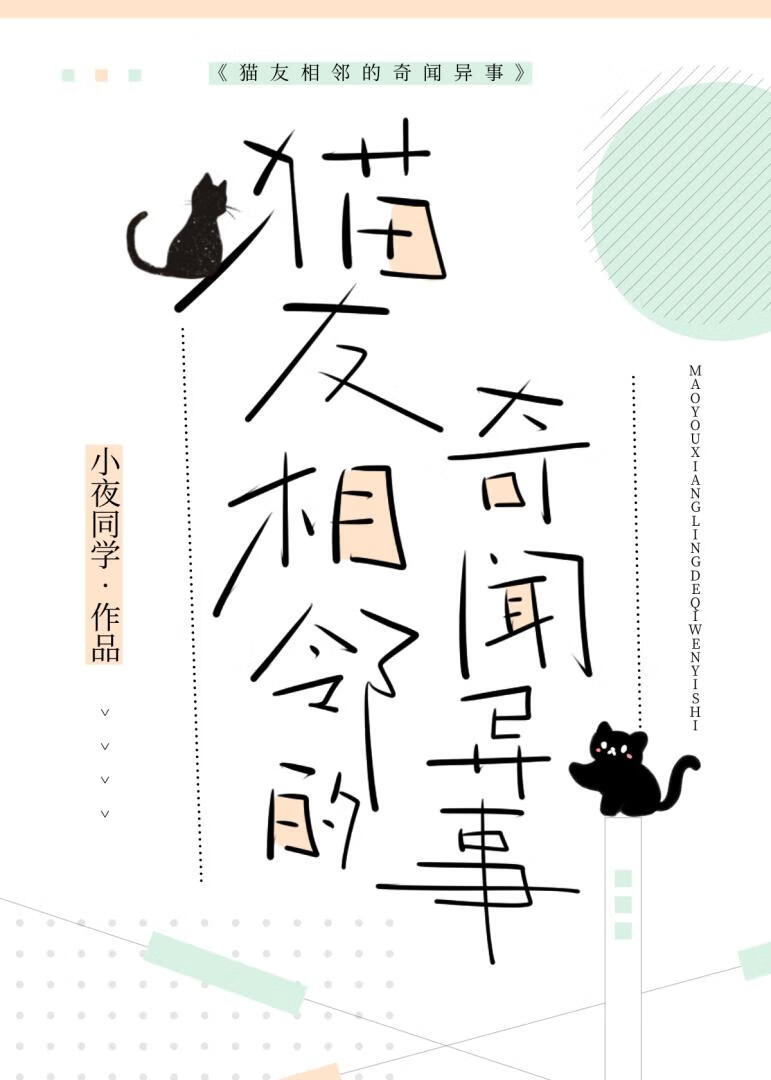 《猫友相邻的奇闻异事》
猫友相邻的
奇闻异事
小夜同学·作品
MAOYOUXIANGLINGDEQIWENYISHI